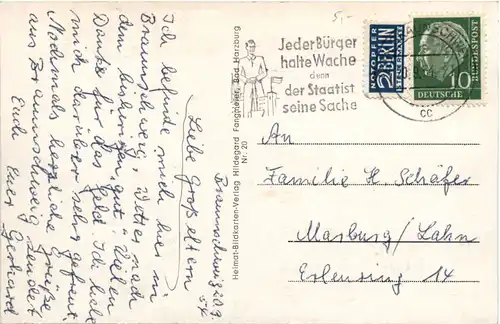 Braunschweig d. 9.
54
Liebe Großeltern
Ich befinde mich hier in
Braunschweig. Wetter nach
dem bisherigen „gut“. Vielen
Dank für das Geld. Ich habe
mich darüber sehr gefreut.
Nochmals herzliche Grüße
aus Braunschweig sendet
Euch Euer Gerhard
Heimat-Bildkarten-Verlag Hildegard Fangmeier, Bad Harzburg
Nr. 20
5,-
Jeder Bürger
halte Wache
denn
der Staat ist
seine Sache
NOTOPFER
2 BERLIN
STEUERMARKE
DEUTSCHE
BUNDESPOST
10
cc
An
Familie H. Schäfer
Marburg / Lahn
Erlenring 14